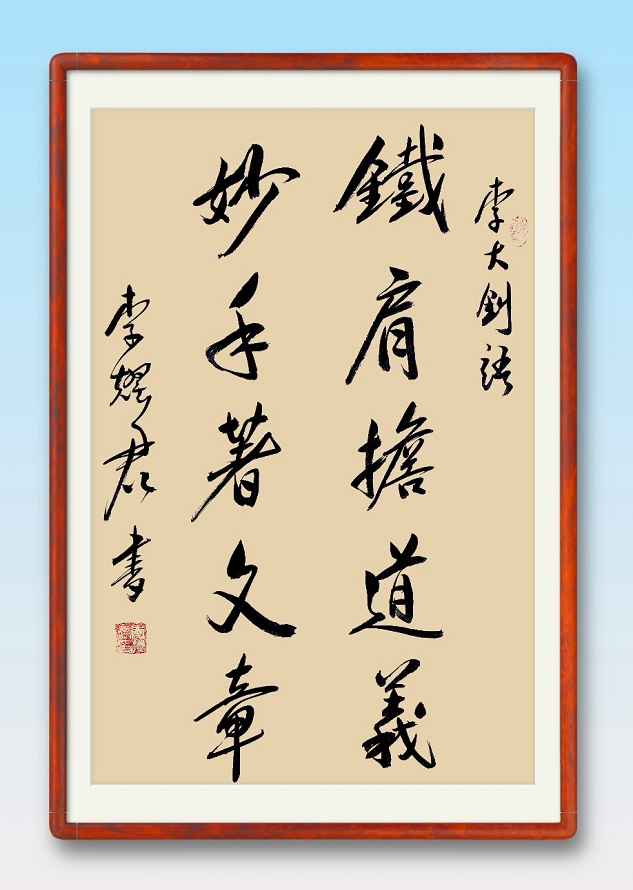 李大釗語
鐵肩擔道義
妙手著文章
李耀君書